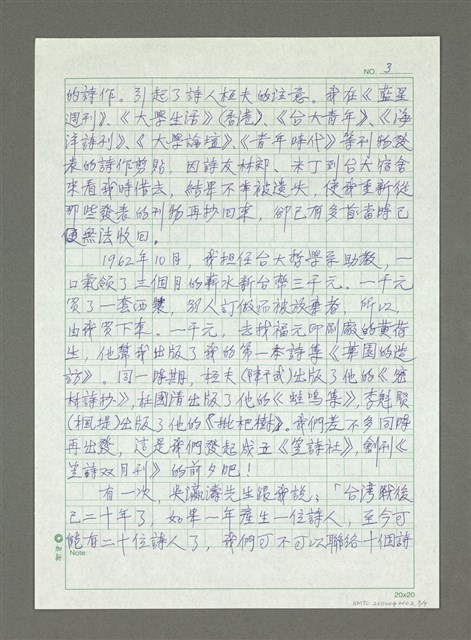 NO. 3
的詩作。引起了詩人桓夫的注意。我在《藍星
週刊》、《大學生活》(香港)、《台大青年》、《海
洋詩刊》、《大學論壇》、《青年時代》等刊物發
表的詩作剪貼,因詩友林郊、未丁到台大宿舍
來看我時借去,結果不幸被遺失,使我重新從
那些發表的刊物再抄回來,卻已有多首當時已
無法收回。
1962年10月,我担任台大哲學系助教,一
口氣領了三個月的薪水新台幣三千元。一千元
買了一套西裝,別人訂做而被放棄者,所以,
由我買下來。一千元,去找福元印刷廠的黃荷
生,他幫我出版了我的第一本詩集《華園的造
訪》。同一時期,桓夫(陳千武)出版了他的《密
林詩抄》,杜國清出版了他的《蛙鳴集》,李魁賢
(楓堤)出版了他的《枇杷樹》。我們差不多同時
再出發,這是我們發起成立《笠詩社》,創刊《
笠詩双月刊》的前夕吧!
有一次,吳瀛濤先生跟我說:「台湾戰後
已二十年了,如果一年產生一位詩人,至今可
能有二十位詩人了,我們可不可以聯絡十個詩
Note:
20x20